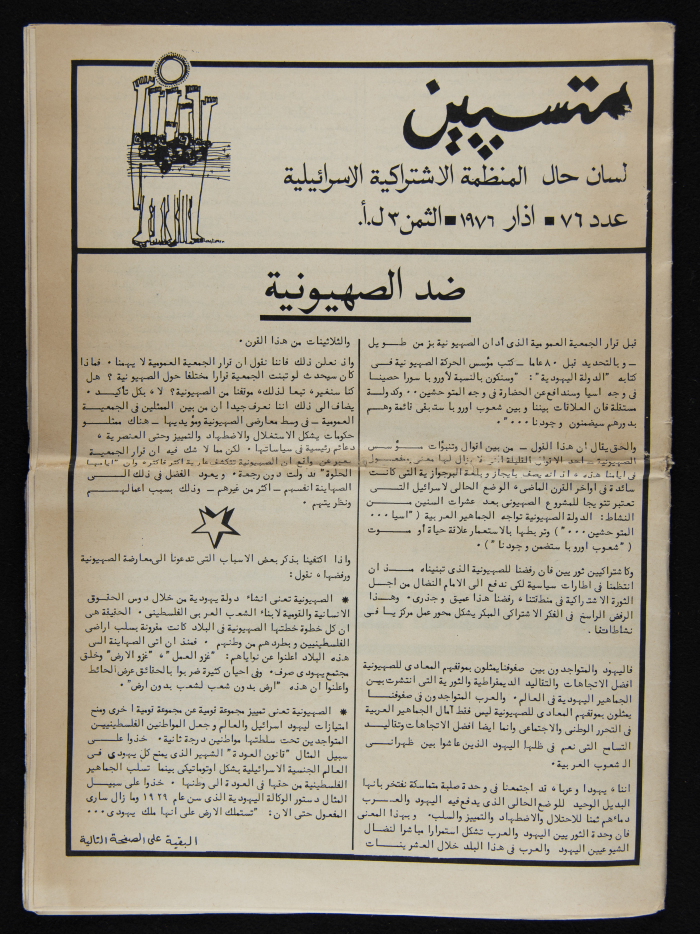 متسپين
لسان حال المنظمة الاشتراكية الاسرائيلية
عدد ٧٦ ■ اذار ١٩٧٦ ■ الثمن ٣ ل.أ.
ضد الصهيونية
قبل قرار الجمعية العمومية الذى أدان الصهيونية بزمن طـويل
ـ وبالتحديد قبل ٨٠ عاما ـ كتب مؤسس الحركة الصهيونية فـى
كتابه "الدولة اليهودية": "وسنكون بالنسبة لأوروبا سورا حصينا
فى وجه اسيا وسندافع عن الحضارة فى وجه المتوحشين٠٠ وكدولـة
مستقلة فان العلاقات بيننا وبين شعوب اوروبا ستبقى قائمة وهـم
بدورهم سيضمنون وجودنا٠٠٠"٠
والحق يقال أن هذا القول ـ من بين اقوال وتنبؤات مـؤسس
الصهيونية ـ احد الاقوال القليلة التى لا يزال لها معنى ومفعـول
فى ايامنا هذه ٠ اذ انه يصف بايجاز وبلغة البرجوازية التى كانـت
سائدة فى اواخر القرن الماضى٬ الوضع الحالى لاسرائيل التـى
تعتبر تتويجا للمشروع الصهيونى بعد عشرات السنين مـن
النشاط: الدولة الصهيونية تواجه الجماهير العربية ("اسيا٠٠٠
المتوحشين٠٠٠") وتربطها بالاستعمار علاقة حياة أو مـوت
("شعوب اوروبا ستضمن وجودنا")٠
وكاشتراكيين ثوريين فان رفضنا للصهيونية الذى تبنيناه مـذ ان
انتظمنا فى اطارات سياسية لكى ندفع الى الامام النضال من اجـل
الثورة الاشتراكية فى منطقتنا٬ رفضنا هذا عميق وجذرى٠ وهـذا
الرفض الراسخ فى الفكر الاشتراكى المبكر يشكل محور عمل مركزيا فـى
نشاطاتنا٠
فاليهود والمتواجدون بين صفوفنا يمثلون بموقفهم المعادى للصهيونية
افضل الاتجاهات والتقاليد الديمقراطية والثورية التى انتشرت بيـن
الجماهير اليهودية فى العالم٠ والعرب المتواجدون فى صفوفنـا
يمثلون بموقفهم المعادى للصهيونية ليس فقط آمال الجماهير العربية
فى التحرر الوطنى والاجتماعى وانما ايضا افضل الاتجاهات وتقاليـد
التسامح التى نعم فى ظلها اليهود الذين عاشوا بين ظهرانـى
الشعوب العربية٠
اننا٬ يهودا وعربا٬ قد اجتمعنا فى وحدة صلبة متماسكة نفتخر بانها
البديل الوحيد للوضع الحالى الذى يدفع فيه اليهود والعـرب
دماءهم ثمنا للاحتلال والاضطهاد والتمييز والسلب٠ وبهذا المعنى
فان وحدة الثوريين اليهود والعرب تشكل استمرارا مباشرا لنضال
الشيوعيين اليهود والعرب فى هذا البلد خلال العشرينـات
والثلاثينات من هذا القرن٠
واذ نعلن ذلك فاننا نقول ان قرار الجمعية العمومية لا يهمنا٠ فماذا
كان سيحدث لو تبنت الجمعية قرارا مختلفا حول الصهيونية؟ هل
كنا سنغير٬ تبعا لذلك٬ موقفنا من الصهيونية؟ لا٬ بكل تأكيـد٠
يضاف الى ذلك اننا نعرف جيدا ان من بين الممثلين فى الجمعيـة
العمومية ـ فى وسط معارضى الصهيونية ومؤيديها ـ هناك ممثلـو
حكومات يشكل الاستغلال والاضطهاد والتمييز وحتى العنصرية٬
دعائم رئيسية فى سياساتها٠ لكن مما لا شك فيه ان قرار الجمعيـة
يعبر عن واقع ان الصهيونية تتكشف عارية اكثر فاكثر٬ وان "ايامهـا
الحلوة" قد ولت دون رجعة٠ ويعود الفضل فى ذلك الـى
الصهاينة انفسهم ـ اكثر من غيرهم ـ وذلك بسبب اعمالهـم
ونظريتهم٠
واذا اكتفينا بذكر بعض الاسباب التى تدعونا الى معارضة الصهيونية
ورفضها٬ نقول:
* الصهيونية تعنى انشاء دولة يهودية من خلال دوس الحقـوق
الانسانية والقومية لابناء الشعب العربى الفلسطينى٠ الحقيقة هى
ان كل خطوة خطتها الصهيونية فى البلاد كانت مقرونة بسلب اراضى
الفلسطينيين وبطردهم من وطنهم٠ فمنذ ان اتى الصهاينة الـى
هذه البلاد اعلنوا عن نواياهم: "غزو العمل"٬ "غزو الارض" وخلق
مجتمع يهودى صرف٠ وفى احيان كثيرة ضربوا بالحقائق عرض الحائط
واعلنوا ان هذه "ارض بدون شعب لشعب بدون ارض"٠
* الصهيونية تعنى تمييز مجموعة قومية عن مجموعة قومية اخرى ومنح
امتيازات ليهود اسرائيل والعالم وجعل المواطنين الفلسطينييـن
المتواجدين تحت سلطتها مواطنين درجة ثانية٠ خذوا علـى
سبيل المثال "قانون العودة" الشهير الذى يمنح كل يهودى فـى
العالم الجنسية الاسرائيلية بشكل اوتوماتيكى بينما تسلب الجماهير
الفلسطينية من حقها فى العودة الى وطنها٠ خذوا على سبيـل
المثال دستور الوكالة اليهودية الذى سن عام ١٩٢٩ وما زال سارى
المفعول حتى الان: "تستملك الارض على انها ملك يهودى٠٠٠
البقية على الصفحة التالية